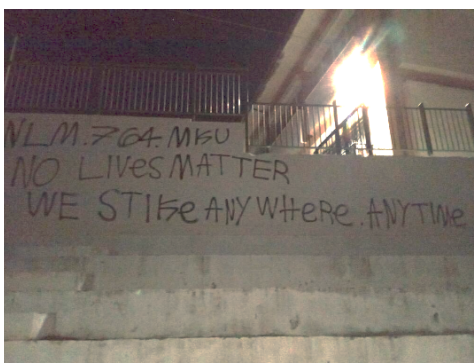 NLM.764.MKU
NO LIVes MATTER
WE STIKe ANYWHeRe.ANYTIMe